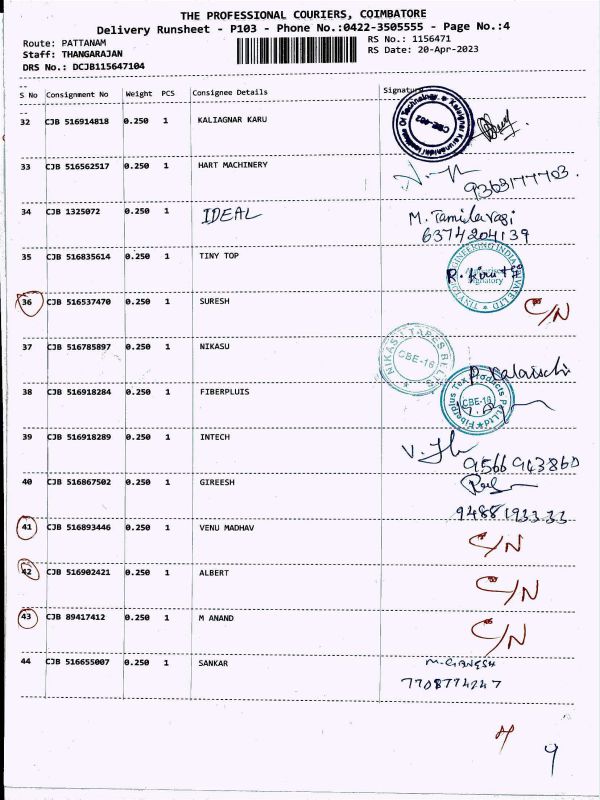 THE PROFESSIONAL COURIERS, COIMBATORE
Delivery Runsheet - P103 - Phone No.:0422-3505555 - Page No.:4
Route: PATTANAM
RS No.: 1156471
Staff: THANGARAJAN
RS Date: 20-Apr-2023
DRS No.: DCJB115647104
S No Consignment No Weight PCS Consignee Details Signature
32 CJB 516914818 0.250 1 KALIAGNAR KARU
CBE-402
33 CJB 516562517 0.250 1 HART MACHINERY
9363177703.
34 CJB 1325072 0.250 1 IDEAL M. Tamilavagi
6374204139
35 CJB 516835614 0.250 1 TINY TOP
36 CJB 516537470 0.250 1 SURESH C/N
37 CJB 516785897 0.250 1 NIKASU
NIKASU TAPES BELT
CBE-16
38 CJB 516918284 0.250 1 FIBERPLUIS
Fiberplus Tex Products Pvt Ltd
CBE-16
39 CJB 516918289 0.250 1 INTECH
9566943860
40 CJB 516867502 0.250 1 GIREESH
9488193333
41 CJB 516893446 0.250 1 VENU MADHAV C/N
42 CJB 516902421 0.250 1 ALBERT C/N
43 CJB 89417412 0.250 1 M ANAND C/N
44 CJB 516655007 0.250 1 SANKAR M. GANESH
7708774247